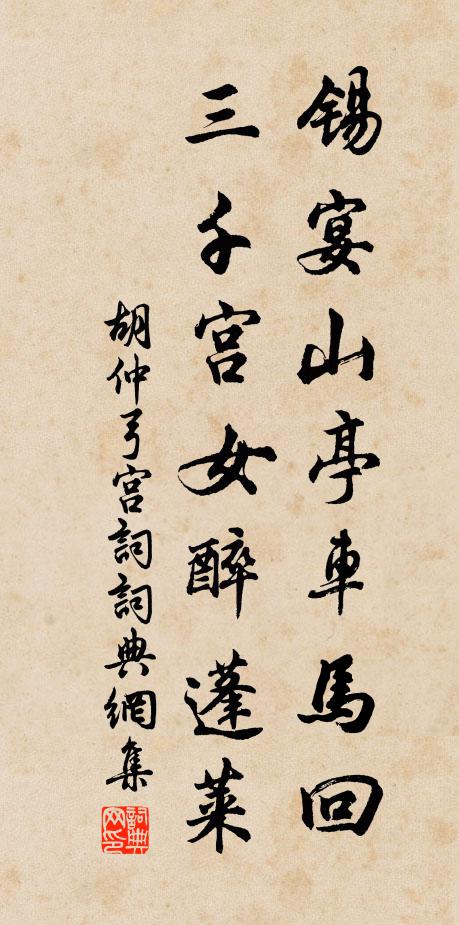 锡宴山亭車馬回
三千宫女醉蓬莱
胡仲弓宫詞詞典網集
詞典网印